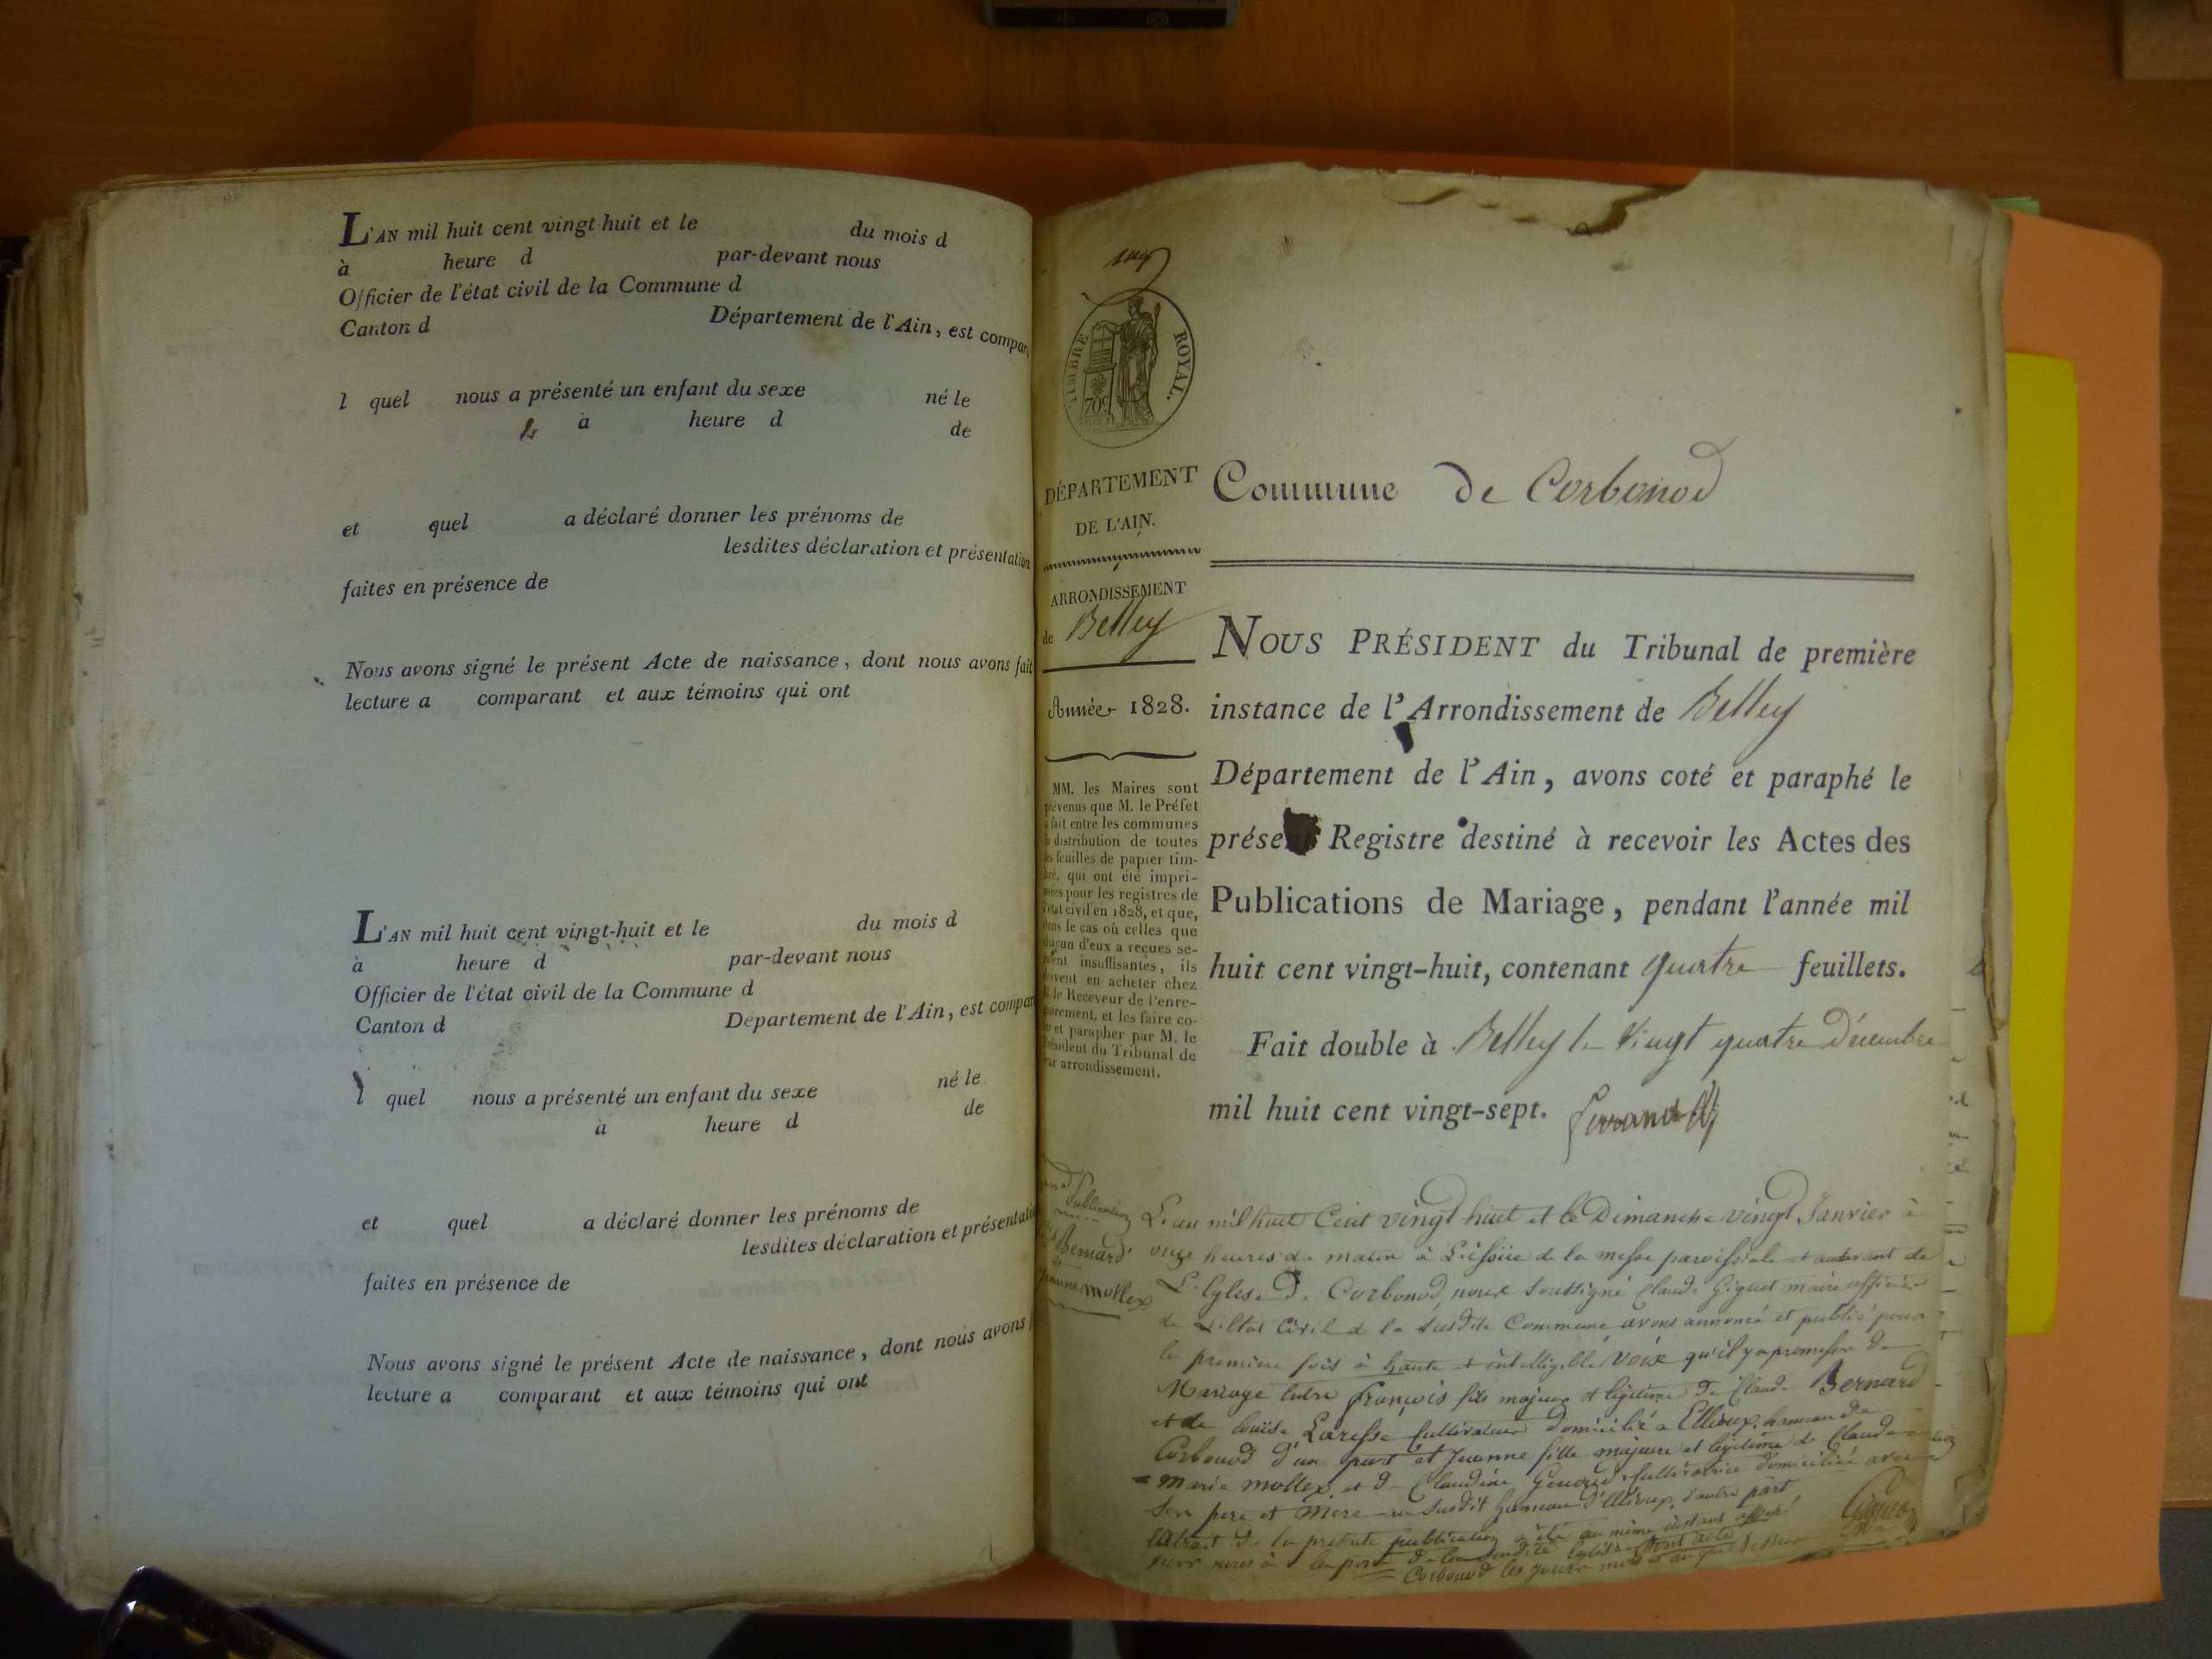 L'AN mil huit cent vingt-huit et le du mois d
à heure d par-devant nous
Officier de l'état civil de la Commune d
Canton d Département de l'Ain, est compar
l quel nous a présenté un enfant du sexe né le
à heure d de
et quel a déclaré donner les prénoms de
lesdites déclaration et présentation
faites en présence de
Nous avons signé le présent Acte de naissance, dont nous avons fait
lecture a comparant et aux témoins qui ont
L'AN mil huit cent vingt-huit et le du mois d
à heure d par-devant nous
Officier de l'état civil de la Commune d
Canton d Département de l'Ain, est compar
l quel nous a présenté un enfant du sexe né le
à heure d de
et quel a déclaré donner les prénoms de
lesdites déclaration et présentati
faites en présence de
Nous avons signé le présent Acte de naissance, dont nous avons f
lecture a comparant et aux témoins qui ont
TIMBRE ROYAL.
70c
DÉPARTEMENT
DE L'AIN.
ARRONDISSEMENT
de Belley
Année 1828.
MM. les Maires sont
prévenus que M. le Préfet
a fait entre les communes
la distribution de toutes
les feuilles de papier tim-
bré, qui ont été impri-
mées pour les registres de
l'état civil en 1828, et que,
dans le cas où celles que
chacun d'eux a reçues se-
roient insuffisantes, ils
doivent en acheter chez
M. le Receveur de l'enre-
gistrement, et les faire co-
ter et parapher par M. le
Président du Tribunal de
leur arrondissement.
Commune de Corbonod
NOUS PRÉSIDENT du Tribunal de première
instance de l'Arrondissement de Belley
Département de l'Ain, avons coté et paraphé le
présent Registre destiné à recevoir les Actes des
Publications de Mariage, pendant l'année mil
huit cent vingt-huit, contenant quatre feuillets.
Fait double à Belley le Vingt quatre Décembre
mil huit cent vingt-sept.
Publication
Bernard
Jeanne Mollex
L'an mil huit Cent vingt huit et le Dimanche vingt Janvier à
onze heures du matin à L'issüe de la messe paroissiale et audevant de
L'Eglese De Corbonod nous soussigné Claude Giguet maire officier
de L'Etat Civil de la susdite Commune avons annoncé et publié pour
la première fois à haute et intelligible voix qu'il y a promesse de
Mariage Entre François fils majeur et légitime de Claude Bernard
et de Louise Laresse cultivateur domicilié a Ellioux, hameau de
Corbonod d'un part et Jeanne fille majeure et légitime de Claude
= Marie Mollex et de Claudine Genoud cultivatrice domiciliée avec
son pere et Mere au susdit hameau d'Ellioux, d'autre part
Extrait de la presente publication a été au même instant affiché
par nous à la porte de la susdite Eglise Dont acte
Corbonod les jour mois et an que dessus